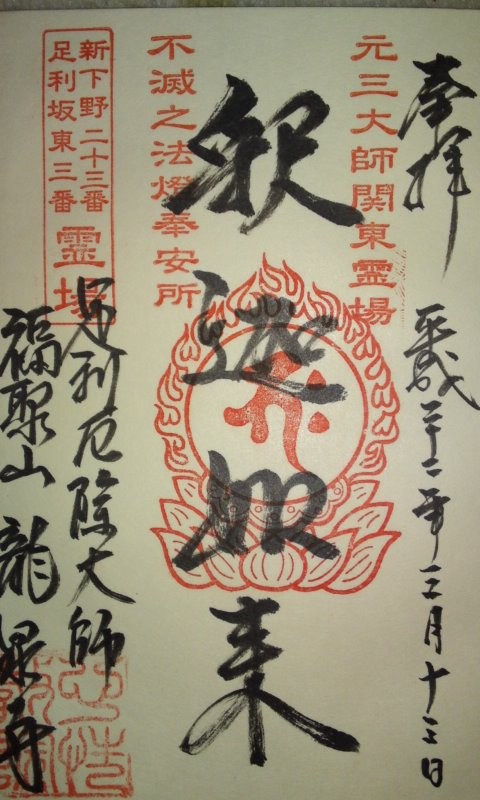 奉拝
平成二十二年三月十三日
元三大師関東霊場
釈迦如来
不滅之法燈奉安所
新下野二十三番
足利坂東三番
霊場
足利厄除大師
福聚山 龍泉寺